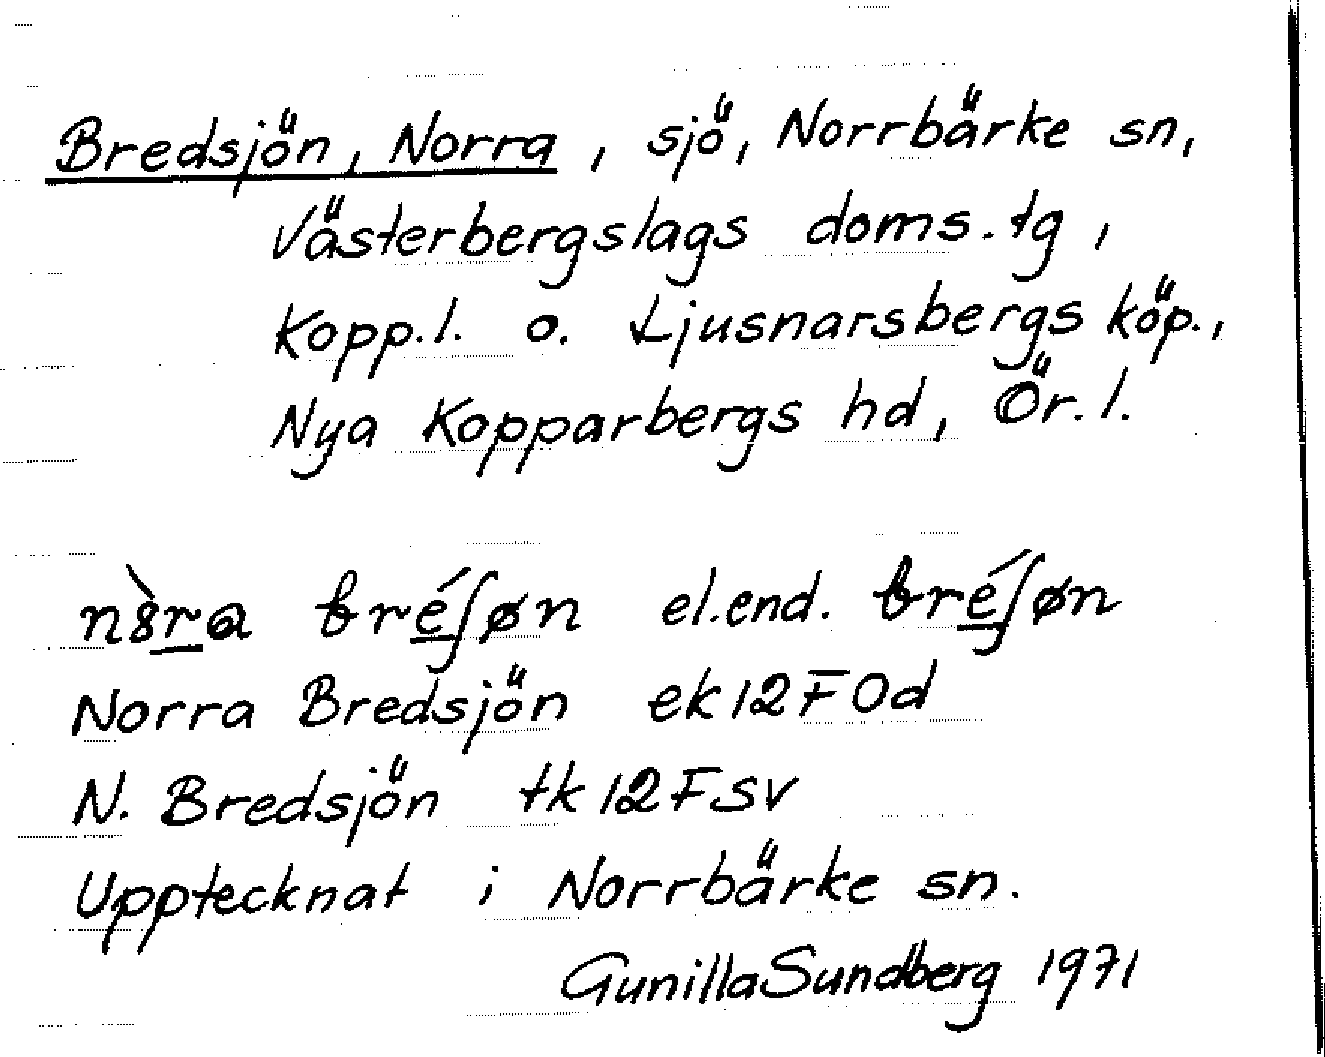 Bredsjön, Norra, sjö, Norrbärke sn,
Västerbergslags doms.tg,
Kopp.l. o. Ljusnarsbergs köp.,
Nya Kopparbergs hd, Ör.l.
nȣ̀ra bréʃøn el.end. bréʃøn
Norra Bredsjön ek12F0d
N. Bredsjön tk12Fsv
Upptecknat i Norrbärke sn.
Gunilla Sundberg 1971